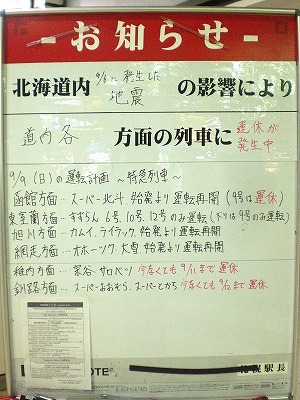 －お知らせ－
北海道内 9/6に発生した 地震 の影響により
道内各 方面の列車に 運休が発生中
9/9(日)の運転計画 ～特急列車～
函館方面…スーパー北斗、始発より運転再開(9号は運休)
東室蘭方面…すずらん 6号、10号、12号のみ運転(下りは9号のみ運転)
旭川方面…カムイ、ライラック、始発より運転再開
網走方面…オホーツク、大雪、始発より運転再開
稚内方面…宗谷、サロベツ 少なくとも9/11まで運休
釧路方面…スーパーおおぞら、スーパーとかち 少なくとも9/12まで運休
札幌駅長